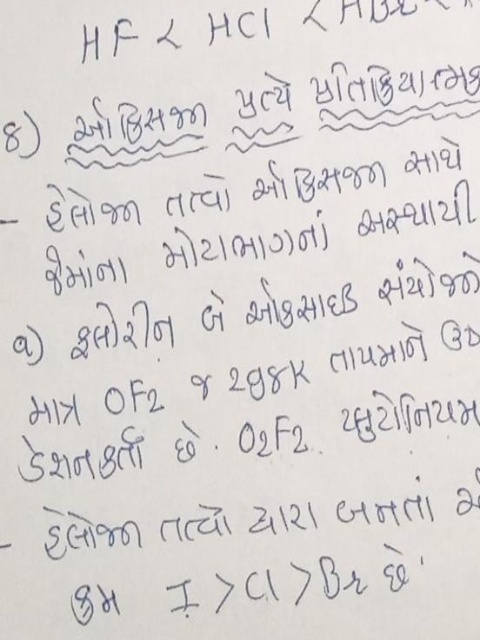 HF < HCl < HBr <
૪) ઓક્સિજન પ્રત્યે પ્રતિક્રિયાત્મક
- હેલોજન તત્વો ઓક્સિજન સાથે
જેમાંના મોટાભાગનાં અસ્થાયી
૧) ફ્લોરીન બે ઓક્સાઇડ સંયોજનો
માત્ર OF2 જ 298K તાપમાને ઉષ્
ડેશનકર્તા છે. O2F2 પ્લુટોનિયમ
- હેલોજન તત્વો દ્વારા બનતાં
ક્રમ I > Cl > Br છે.